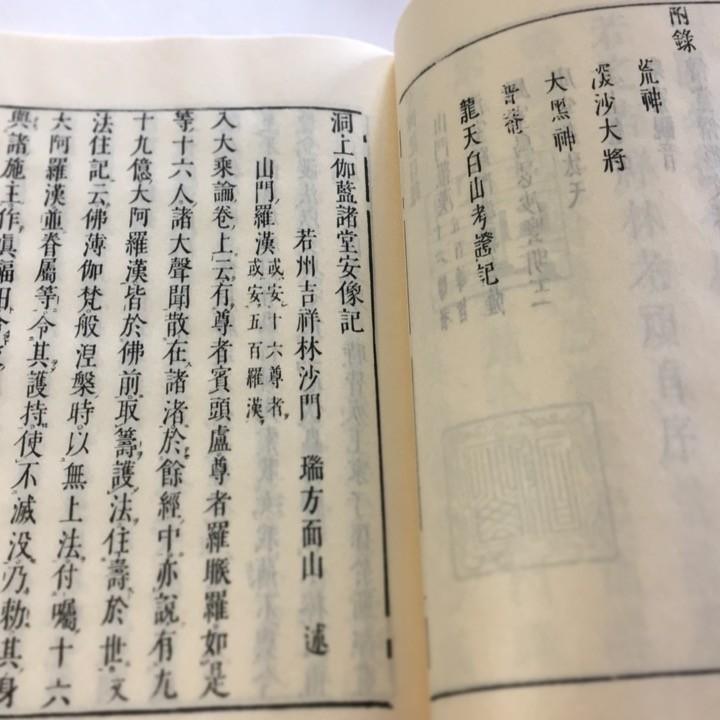 附錄
荒神
深沙大將
大黑神
普菴
龍天白山考證記
洞上伽藍諸堂安像記
若州吉祥林沙門 瑞方面山 述
山門羅漢 或安十六尊者 或安五百羅漢
入大乘論卷上云有尊者賓頭盧尊者羅睺羅如是
等十六人諸大聲聞散在諸渚於餘經中亦說有九
十九億大阿羅漢皆於佛前取籌護法住壽於世文
法住記云佛薄伽梵般涅槃時以無上法付囑十六
大阿羅漢並眷屬等令其護持使不滅没乃勅其身
與諸施主作眞福田令